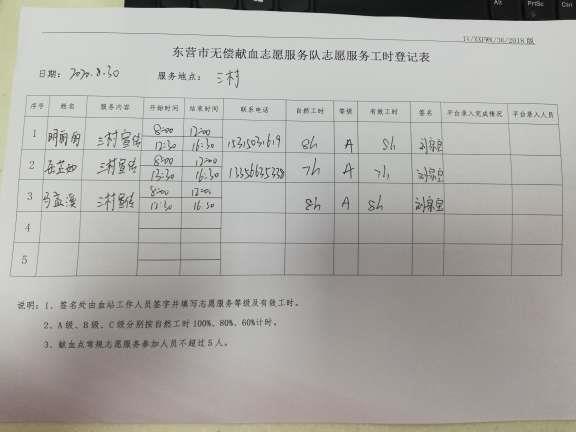 东营市无偿献血志愿服务队志愿服务工时登记表
日期：2020.8.30 服务地点：三村
序号 姓名 服务内容 开始时间 结束时间 联系电话 自然工时 等级 有效工时 签名 平台录入完成情况 平台录入人员
1 三村宣传 8:00 12:00 8h A 8h
12:30 16:30
2 三村宣传 8:00 12:00 7h A 7h
13:30 16:30
3 三村宣传 8:00 12:00 8h A 8h
12:30 16:30
4
5
说明：1、签名处由血站工作人员签字并填写志愿服务等级及有效工时。
2、A级、B级、C级分别按自然工时100%、80%、60%计时。
3、献血点常规志愿服务参加人员不超过5人。